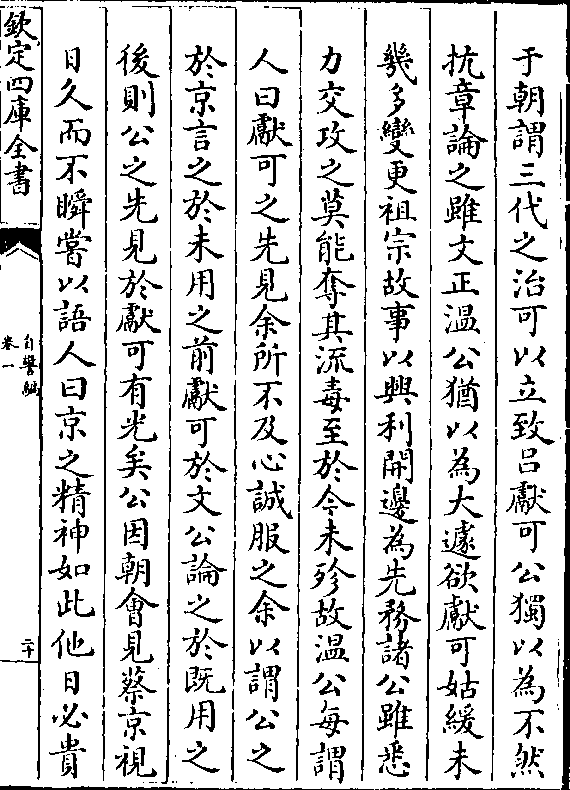 于朝謂三代之治可以立致呂獻可公獨以為不然
抗章論之雖文正溫公猶以為大遽欲獻可姑緩未
幾多變更祖宗故事以興利開邊為先務諸公雖悉
力交攻之莫能奪其流毒至於今未殄故溫公每謂
人曰獻可之先見余所不及心誠服之余以謂公之
於京言之於未用之前獻可於文公論之於既用之
後則公之先見於獻可有光矣公因朝會見蔡京視
日久而不瞬嘗以語人曰京之精神如此他日必貴
欽定四庫全書
自警編
卷一
二十